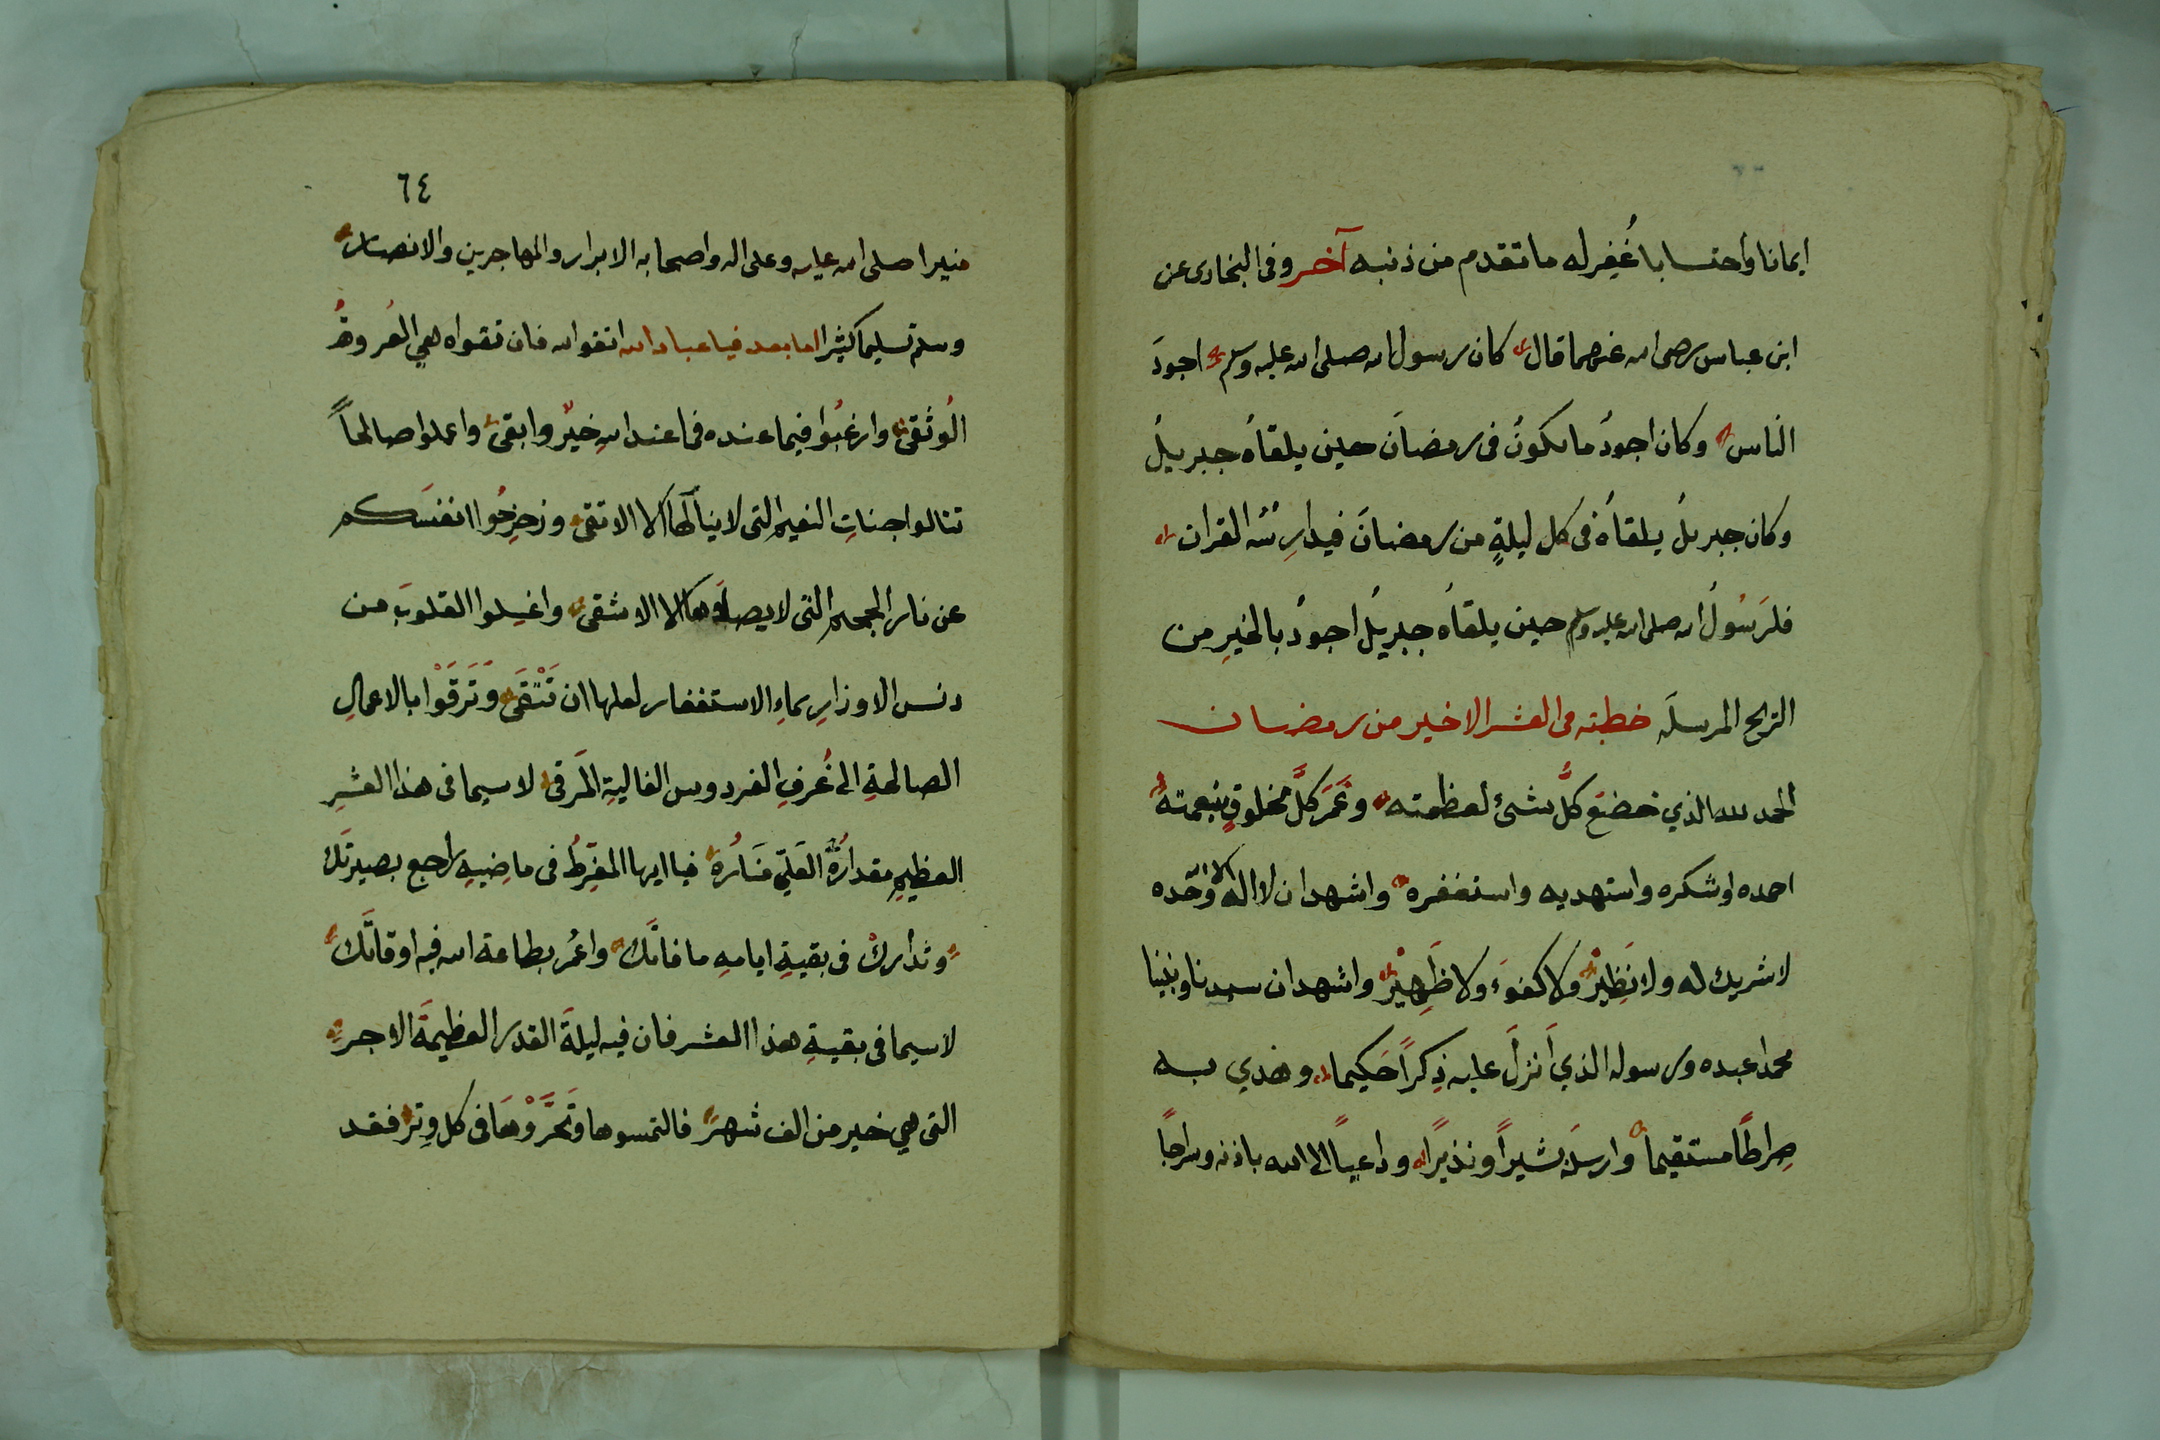 ايمانا واحتسابا غُفِر له ما تقدم من ذنبه آخر وفى البخارى عن
ابن عباس رضى الله عنهما قال كان رسول الله صلى الله عليه وسلم اجودَ
الناس وكان اجودُ ما يكونُ فى رمضانَ حين يلقاهُ جبريلُ
وكان جبريلُ يلقاهُ فى كل ليلةٍ من رمضانَ فيدارِسُه القران
فلرَسُولُ الله صلى الله عليه وسلم حين يلقاهُ جبريلُ اجودُ بالخيرِ من
الريح المرسلَه خطبته فى العشر الاخير من رمضان
الحمد لله الذي خضعَ كلُّ شئ لعظمته وغَمَرَ كلَّ مخلوقٍ بنعمته
احمده واشكره واستهديه واستغفره واشهد ان لا اله الا الله وحده
لا شريك له ولا نَظِيْر ولا كفوء ولا ظَهِيْر واشهد ان سيدنا ونبينا
محمدا عبده ورسوله الذي أَنزلَ عليه ذِكراً حَكيما وهدي به
صِراطًا مستقيما وارسلَه بشيراً ونذيرًا وداعياً الى الله باذنه وسراجًا
٦٤
منيرا صلى الله عليه وعلى اله واصحابه الابرار والمهاجرين والانصار
وسلم تسليما كثيرا اما بعد فيا عباد الله اتقوا الله فان تقواه هي العُروةُ
الوُثقى وارغبُوا فيما عنده فما عند اللهِ خيرٌ وابقى واعملوا صالحاً
تنالوا جناتِ النعيم التى لا ينالُها الا الاتقى وزحزِحُوا انفسَكم
عن نار الجحيم التى لا يصلاها الا الاشقى واغسِلوا القلوبَ من
دنس الاوزارِ بماءِ الاستغفار لعلها ان تَنْتَقَى وتَرَقَوْا بالاعمالِ
الصالحةِ الى غُرفِ الفردوس الغاليةِ المَرقى لا سيما فى هذا العَشرِ
العظيمِ مقدارُهُ العَلِيّ مَنَارُه فيا ايها المفرِّطُ فى ماضيهِ راجع بصيرتَك
وتدارَكْ فى بقيةِ ايامهِ ما فاتَك واعمُر بطاعة الله فيه اوقاتَك
لا سيما فى بقيةِ هذا العشر فان فيه ليلةَ القدر العظيمةَ الاجر
التى هي خير من الف شهر فالتمسوها وتَحَرَّوْهَا فى كل وِترٍ فقد